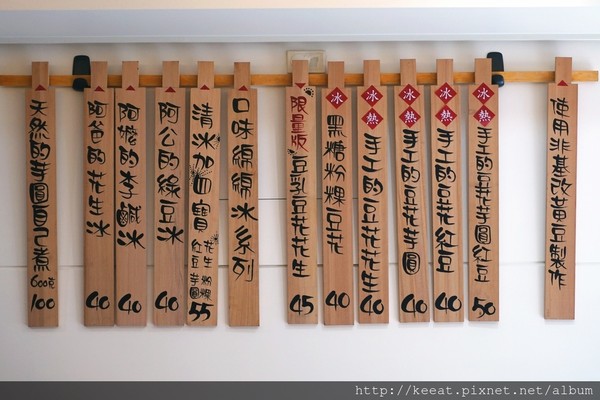 天然的芋圓自己煮
600克
100
阿爸的花生冰
40
阿嬤的李鹹冰
40
阿公的綠豆冰
40
清冰加四寶
花生 粉粿
紅豆 芋圓
55
口味綿綿冰系列
限量版
豆乳豆花花生
45
冰
黑糖粉粿豆花
40
冰 熱
手工的豆花花生
40
冰 熱
手工的豆花芋圓
40
冰 熱
手工的豆花紅豆
40
冰 熱
手工的豆花芋圓紅豆
50
使用非基改黃豆製作
http://keeat.pixnet.net/album